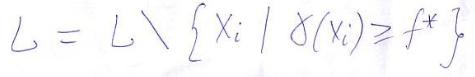 L = L \ { x_i | γ(x_i) ≥ f* }